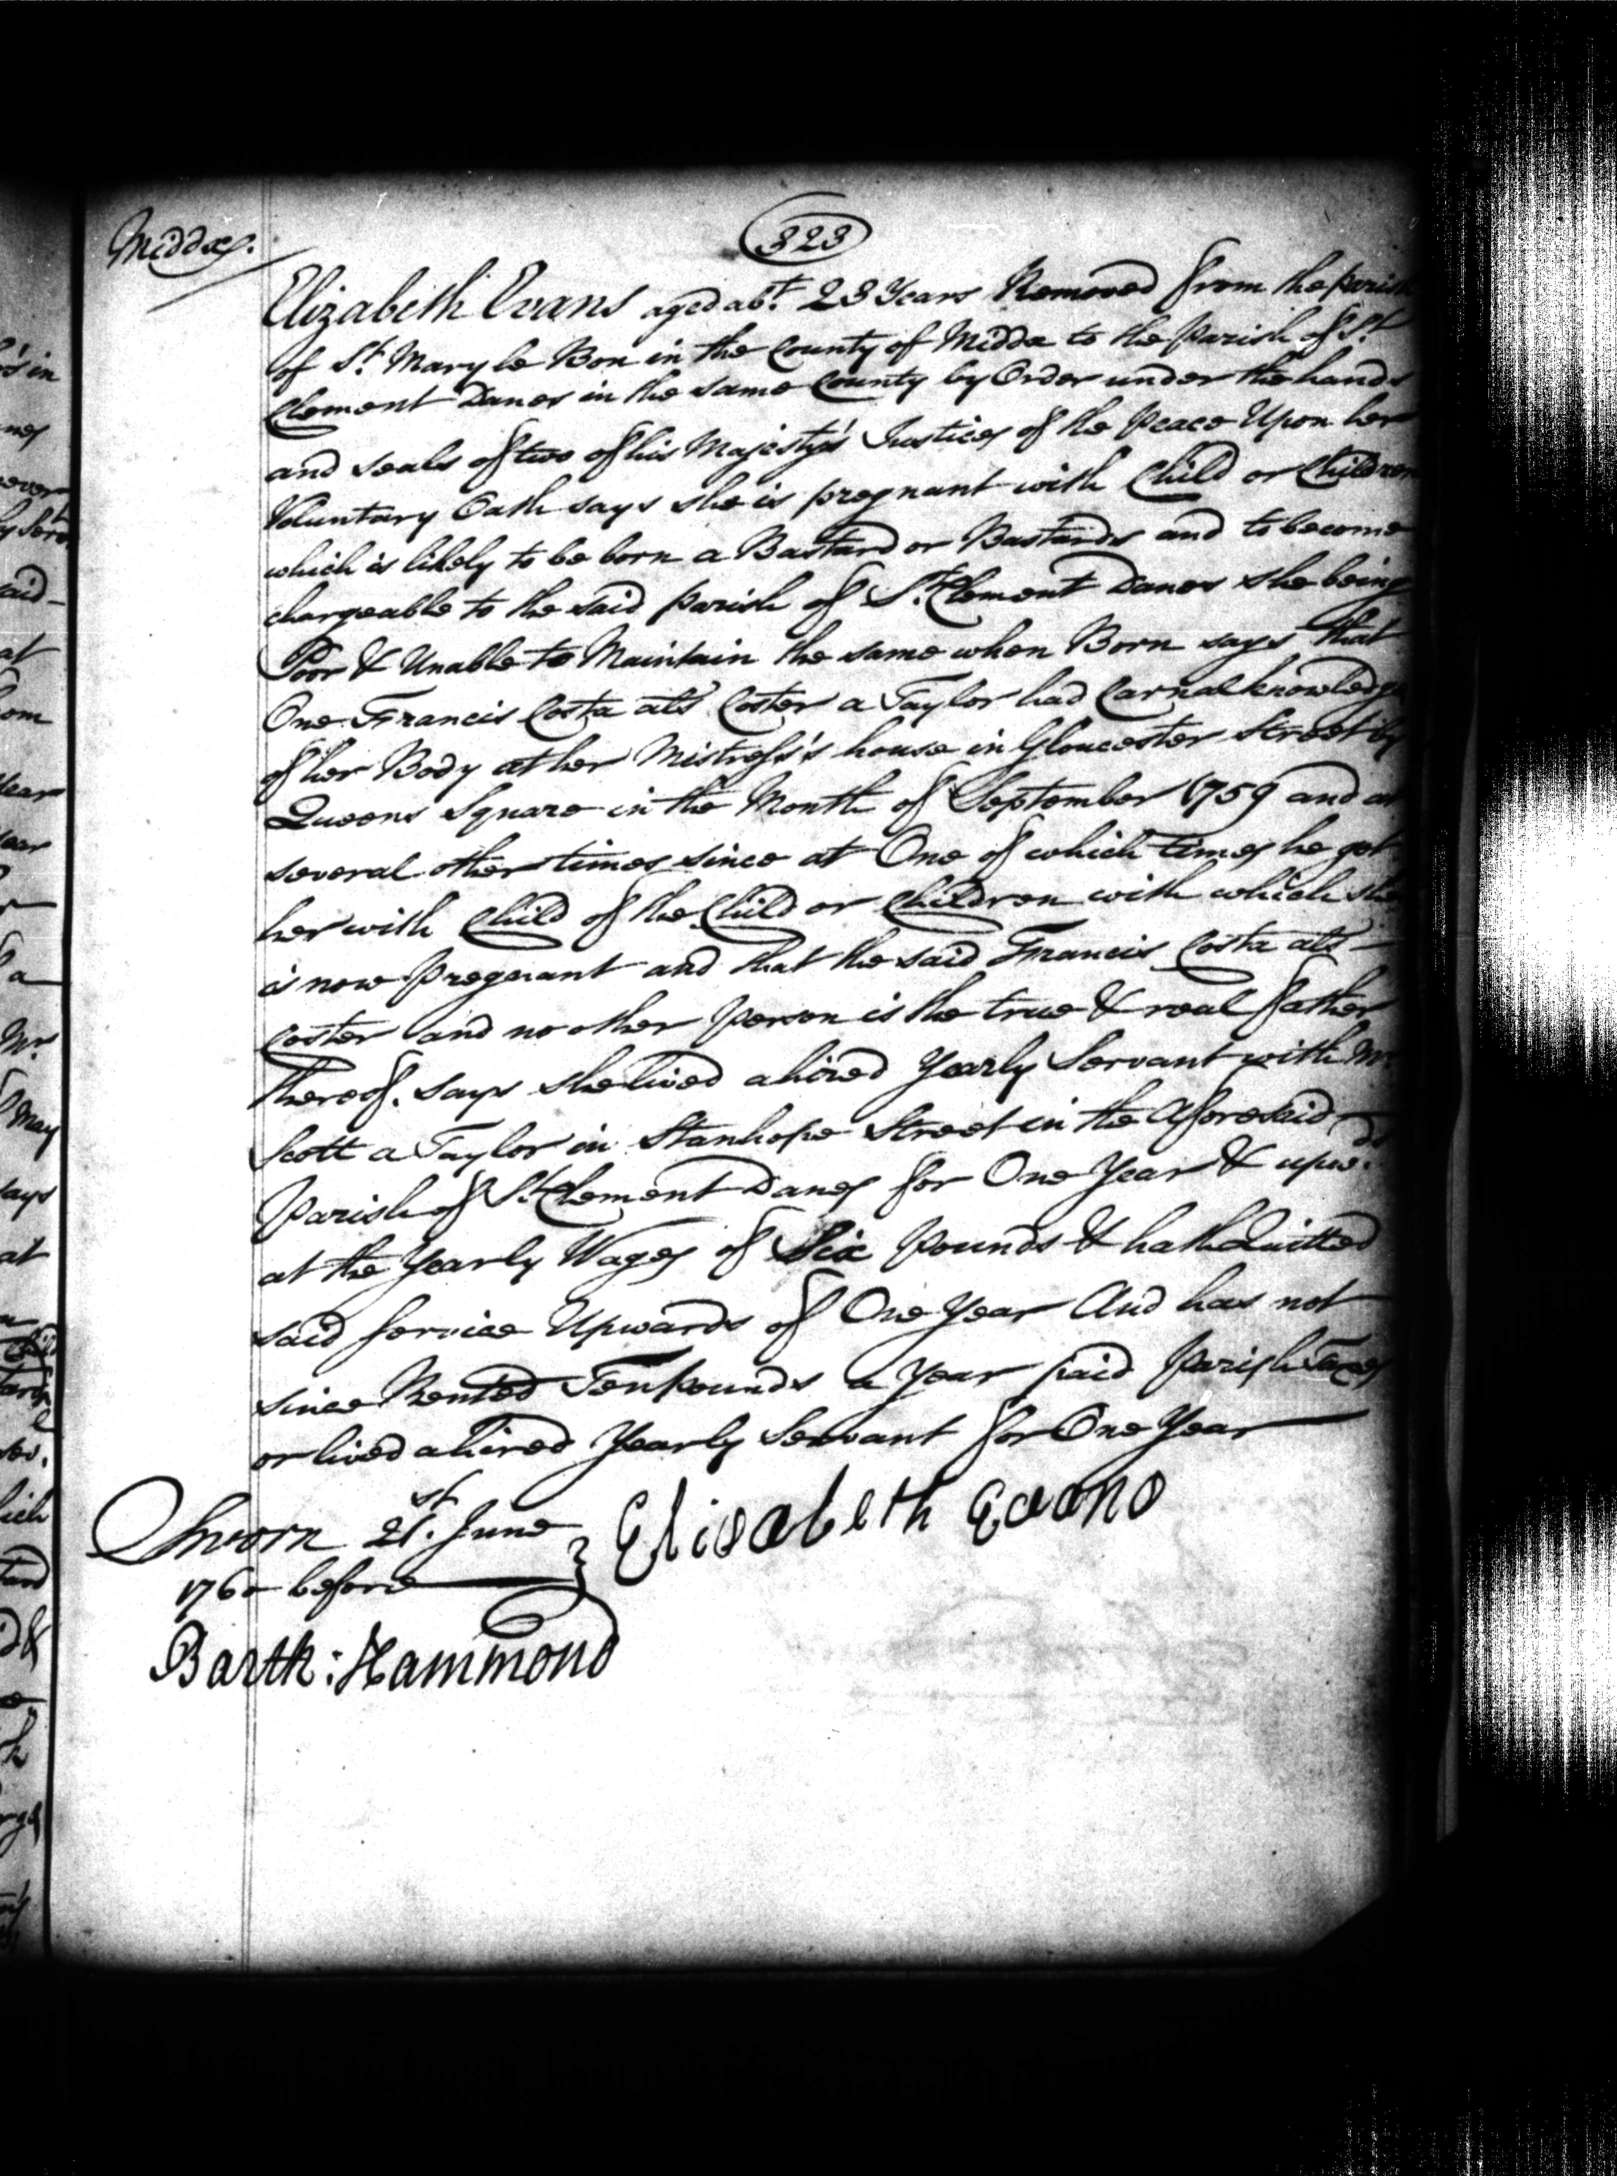 323
Middx.
Elizabeth Evans aged abt. 23 Years Removed from the parish
of St. Mary le Bon in the County of Middx to the Parish of St.
Clement Danes in the same County by Order under the hands
and seals of two of his Majesty's Justices of the Peace Upon her
Voluntary Oath says she is pregnant with Child or Children
which is likely to be born a Bastard or Bastards and to become
chargeable to the said parish of St. Clement Danes she being
Poor & Unable to Maintain the same when Born says that
One Francis Costa als Coster a Taylor had Carnal knowledge
of her Body at her Mistress's house in Gloucester Street by
Queens Square in the Month of September 1759 and at
several other times since at One of which times he got
her with Child of the Child or Children with which she
is now Pregnant and that the said Francis Costa als
Coster and no other Person is the true & real father
thereof. Says she lived a hired Yearly Servant with Mr.
Scott a Taylor in Stanhope Street in the Aforesaid
Parish of St. Clement Danes for One Year & upwds.
at the Yearly Wages of Six Pounds & hath Quitted
said Service Upwards of One Year And has not
since Rented Ten Pounds a Year paid Parish Taxes
or lived a hired Yearly Servant for One Year
Sworn 21st. June
1760 before
Elisabeth Evans
Barth: Hammond